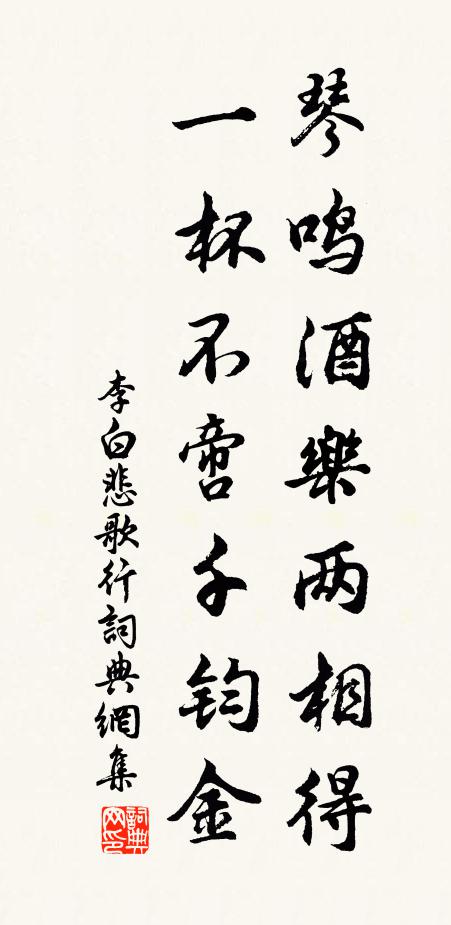 琴鸣酒樂两相得
一杯不啻千钧金
李白悲歌行詞典網集
詞典網印